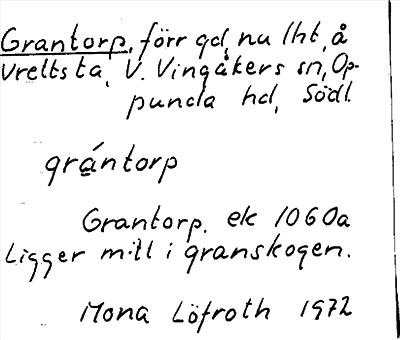 Grantorp, förr gd, nu lht, å
Vretts ta, V. Vingåkers sn, Op-
punda hd, Södl.
grántorp
Grantorp. ek 1060a
Ligger mitt i granskogen.
Mona Löfroth 1972